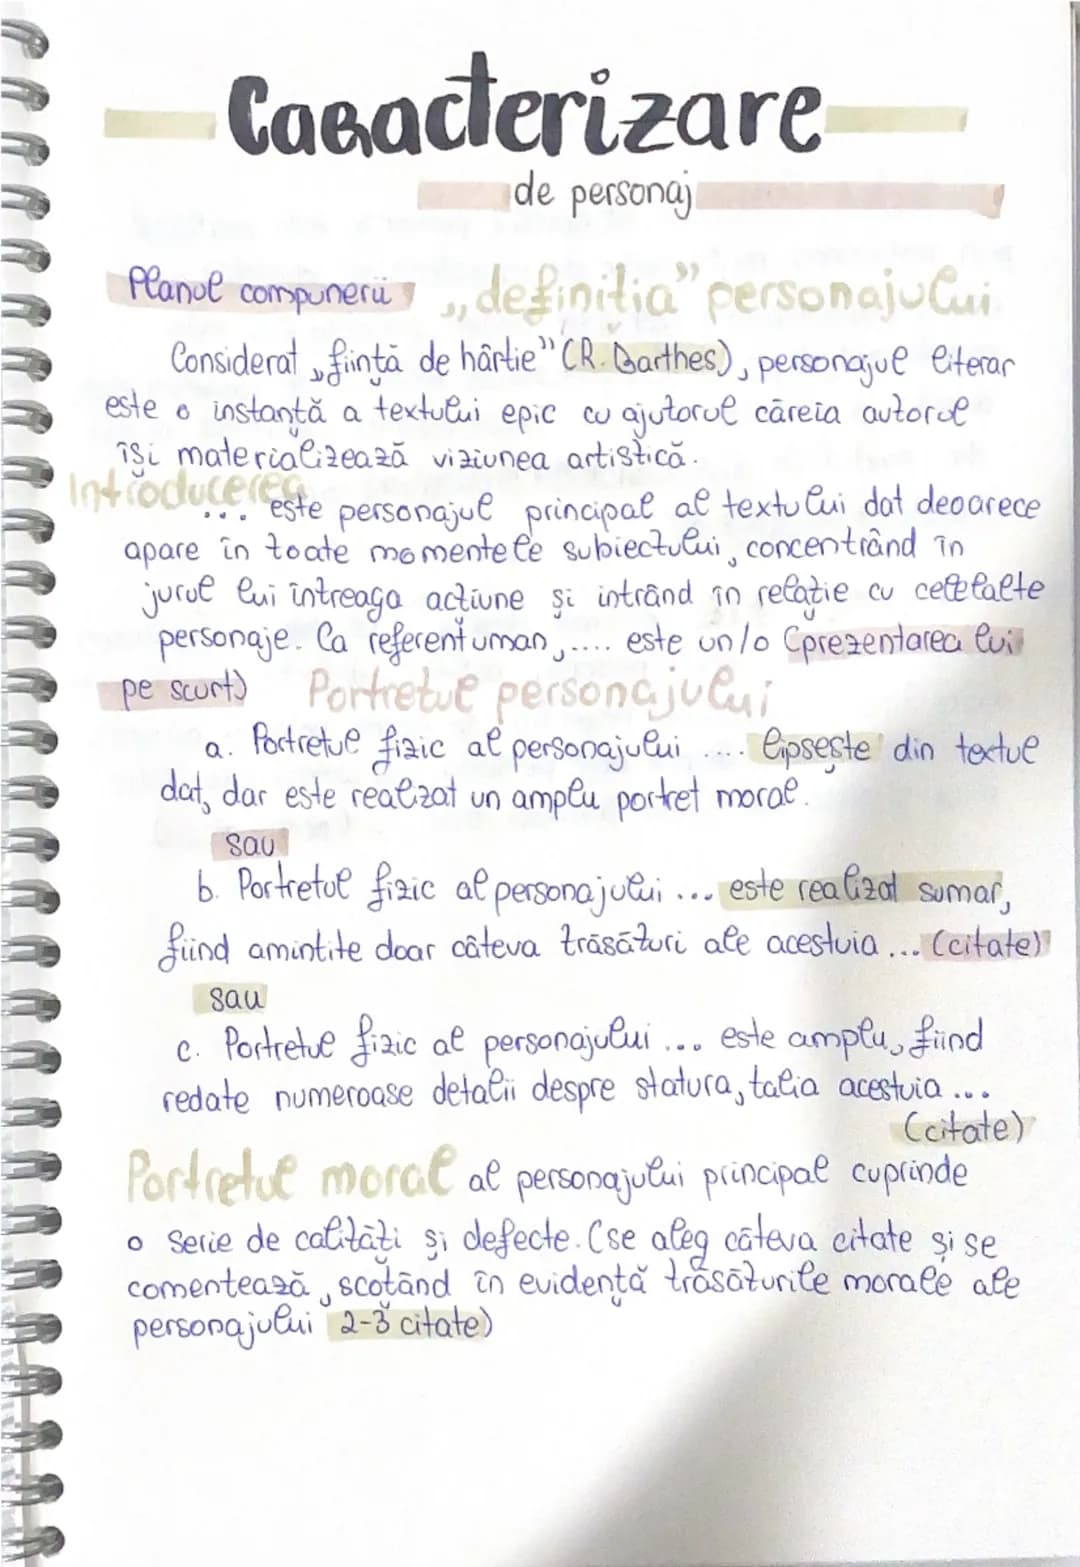 Caracterizare
de personaj
Planul compunerii „definiția” personajului
Considerat „ființă de hârtie” (R. Barthes), personajul literar
este o instanță a textului epic cu ajutorul căreia autorul
își materializează viziunea artistică.
Introducerea
... este personajul principal al textului dat deoarece
apare în toate momentele subiectului, concentrând în
jurul lui întreaga acțiune și intrând în relație cu celelalte
personaje. Ca referent uman, .... este un/o (prezentarea lui
pe scurt) Portretul personajului
a. Portretul fizic al personajului .... lipsește din textul
dat, dar este realizat un amplu portret moral.
sau
b. Portretul fizic al personajului ... este realizat sumar,
fiind amintite doar câteva trăsături ale acestuia ... (citate)
sau
c. Portretul fizic al personajului ... este amplu, fiind
redate numeroase detalii despre statura, talia acestuia ...
(citate)
Portretul moral al personajului principal cuprinde
o serie de calități și defecte. (se aleg câteva citate și se
comentează, scoțând în evidență trăsăturile morale ale
personajului 2-3 citate)